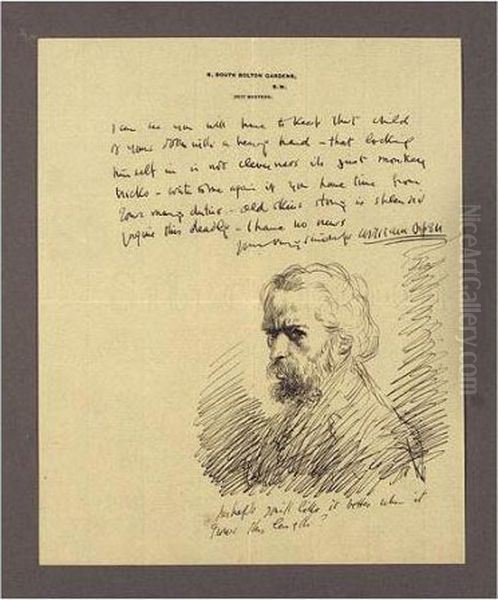 8, SOUTH BOLTON GARDENS,
S.W.
I can see you will have to keep that child
of yours down with a heavy hand – that locking
himself in is not cleverness its just monkey
tricks – write to me again if you have time from
your many duties – old story is splendid
forgive this deadly – I have no news
yours very sincerely William Orpen
perhaps you'll like it better when it
grows this length?
NiceArtGallery.com